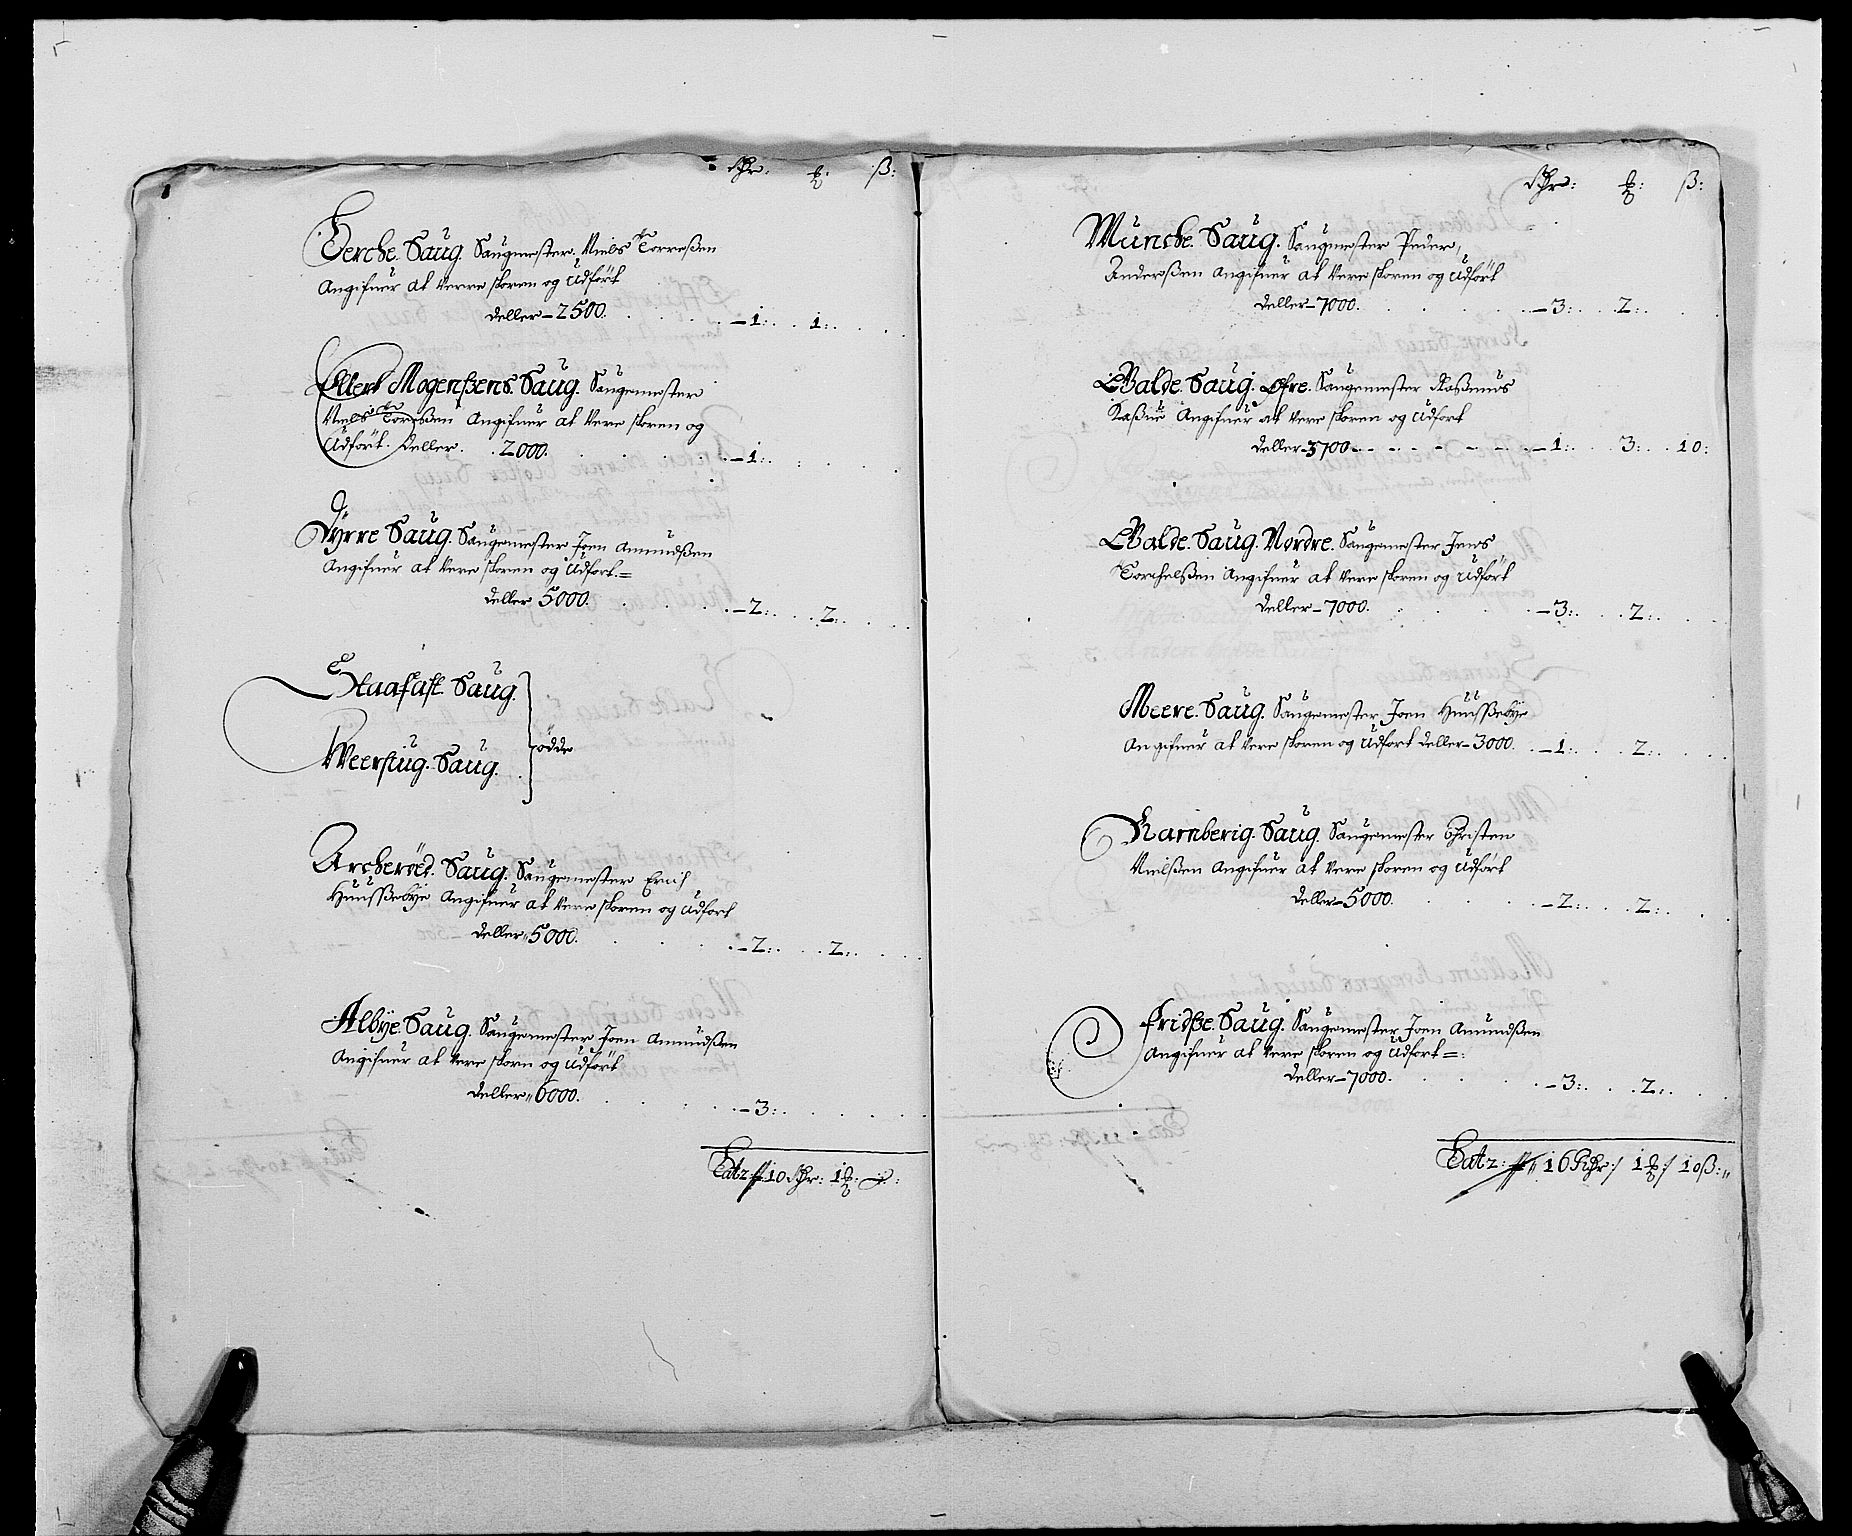 Rdr: ß:
Lerche. Saug. Saugmester. Niels Torreßen
Angifuer at verre skoren og Udfört
deller - 2500. - 1: 1:
Ellert Mogenßens. Saug. Saugmester
Niels Torreßen Angifuer at vere skoren og
Udfört. deller. 2000. - 1:
Dyrre Saug. Saugmester Joen Amundßen
Angifuer at vere skoren og Udfort. =
deller 5000. - 2: 2:
Staafast. Saug.
Meerstug. Saug. } ödde
Archeröed. Saug. Saugmester Erich
Huusßebye Angifuer at vere skoren og Udfort
deller 5000. - 2: 2:
Albye. Saug. Saugmester Joen Amundßen
Angifuer at vere skoren og Udfört
deller 6000. - 3:
Latz 10 Rdr: 1
Rdr: ß:
Münche. Saug. Saugmester Peder
Anderßen Angifuer at vere skoren og Udfört
deller - 7000. - 3: 2:
Walde. Saug. Øfre. Saugmester Raßmus
Angifuer at vere skoren og Udfort
deller - 3700 - 1: 3: 10:
Walde. Saug. Nordre. Saugmester Jens
Torchelßen Angifuer at vere skoren og Udfört
deller - 7000. - 3: 2:
Meere. Saug. Saugmester Joen Huusßebye
Angifuer at vere skoren og Udfort deller - 3000. - 1: 2:
Karnberig. Saug. Saugmester Christen
Nielßen Angifuer at vere skoren og Udfört
deller - 5000. - 2: 2:
Fridße. Saug. Saugmester Joen Amundßen
Angifuer at vere skoren og Udfort =:
deller - 7000. - 3: 2:
Latz: 16 Rdr: 1 10 ß: